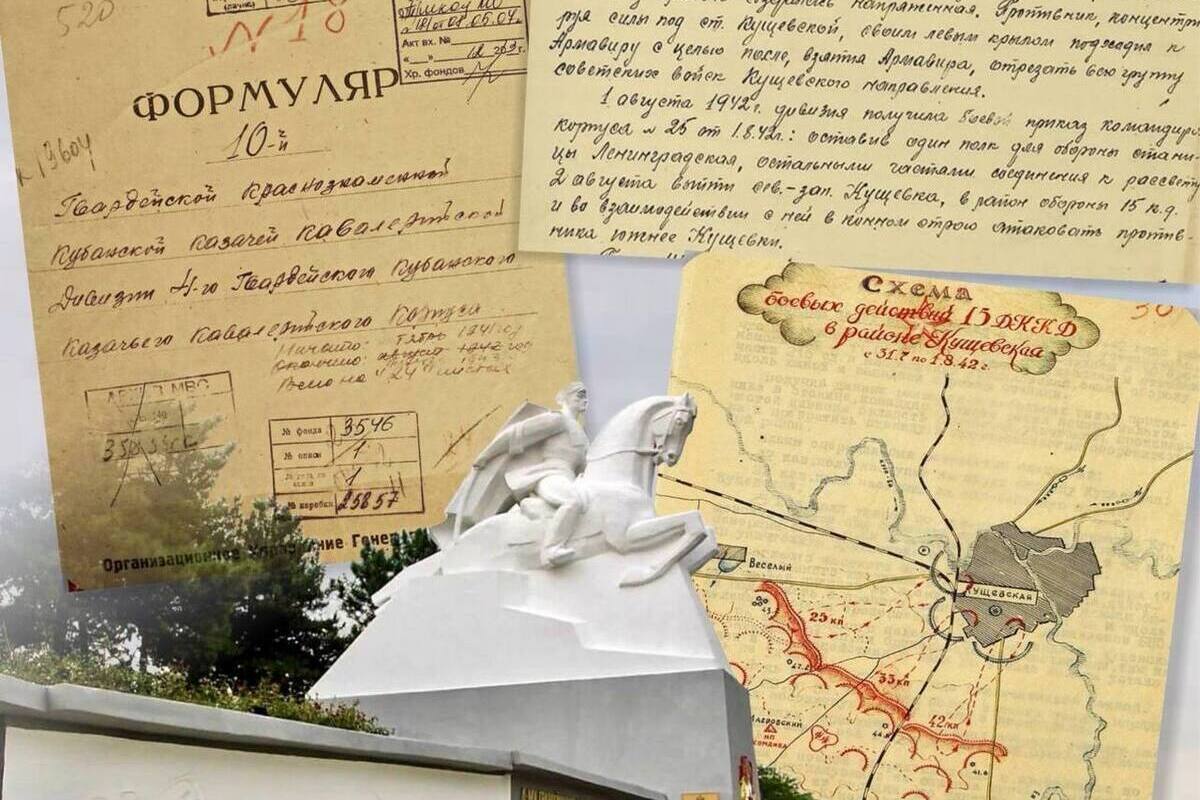 520
№18
181 от 08.05.04г.
Акт вх. №
Хр. фондов
ФОРМУЛЯР
10-й
Гвардейской Краснознаменной
Кубанской казачей кавалерийской
Дивизии 4-го Гвардейского Кубанского
Казачьего Кавалерийского Корпуса
Начато:
Окончено: август 1942 год
13604
АРХИВ МВС
№ фонда 3546
№ описи 1
1
№ коробки 25857
Организационное Управление Генер
напряженная. Противник, концентри-
руя силы под ст. Кущевской, своим левым крылом подходил к
Армавиру с целью после, взятия Армавира, отрезать всю группу
советских войск Кущевского направления.
1 августа 1942г. дивизия получила боевой приказ командира
корпуса № 25 от 1.8.42г.: оставив один полк для обороны стани-
цы Ленинградская, остальными частями соединения к рассвету
2 августа выйти сев.-зап. Кущевка, в район обороны 15 к.д.
и во взаимодействии с ней в конном строю атаковать против-
ника южнее Кущевки.
Схема
боевых действий 15 ДККД
в районе Кущевская
с 31.7 по 1.8.42г.
Веселый
КУЩЕВСКАЯ
25 кп
33 кп
42 кп
НП
КОМДИВА